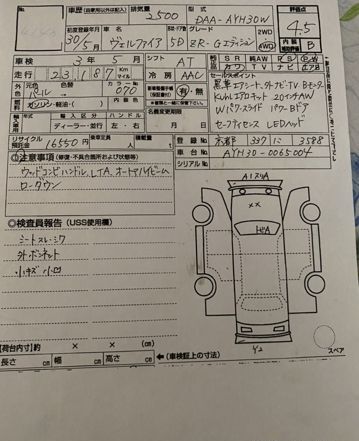 No.
車歴 (自家用以外記入) 排気量 2500 型式 DAA-AYH30W
初度登録年月 車名 ドア・ボデー グレード 2WD 4WD
30/5月 ヴェルファイア 5D ZR-Gエディション
評価点 4.5
内装 B
車検 3年5月
シフト AT
走行 23,187 Km マイル
冷房 AAC
外色 パール カラー 070
有・無
ガソリン・軽油・( )
輸入車 ハンドル
ディーラー・並行 左・右
名義変更期限
月
リサイクル預託金 16550円 乗車定員 積載量
SR 純AW PS PW
カワ TV ナビ エアB
セールスポイント
黒革エアシート ナビ・TV Bモニター
KUHLエアロキット 20インチAW
Wパワースライド パワーBドア
セーフティセンス LEDヘッド
登録No. 京都 337 に 3588
車台No. AYH30-0065004
シリアルNo.
注意事項 (修復・不具合箇所および状態等)
ウッドコンビハンドル、LTA、オートハイビーム
ローダウン
◎検査員報告 (USS使用欄)
シートスレ・シワ
外・ボンネット
小キズ 小凹
【荷台内寸】約 × × (cm)
長さ cm 幅 cm 高さ cm
(車検証上の寸法)
××
スペア